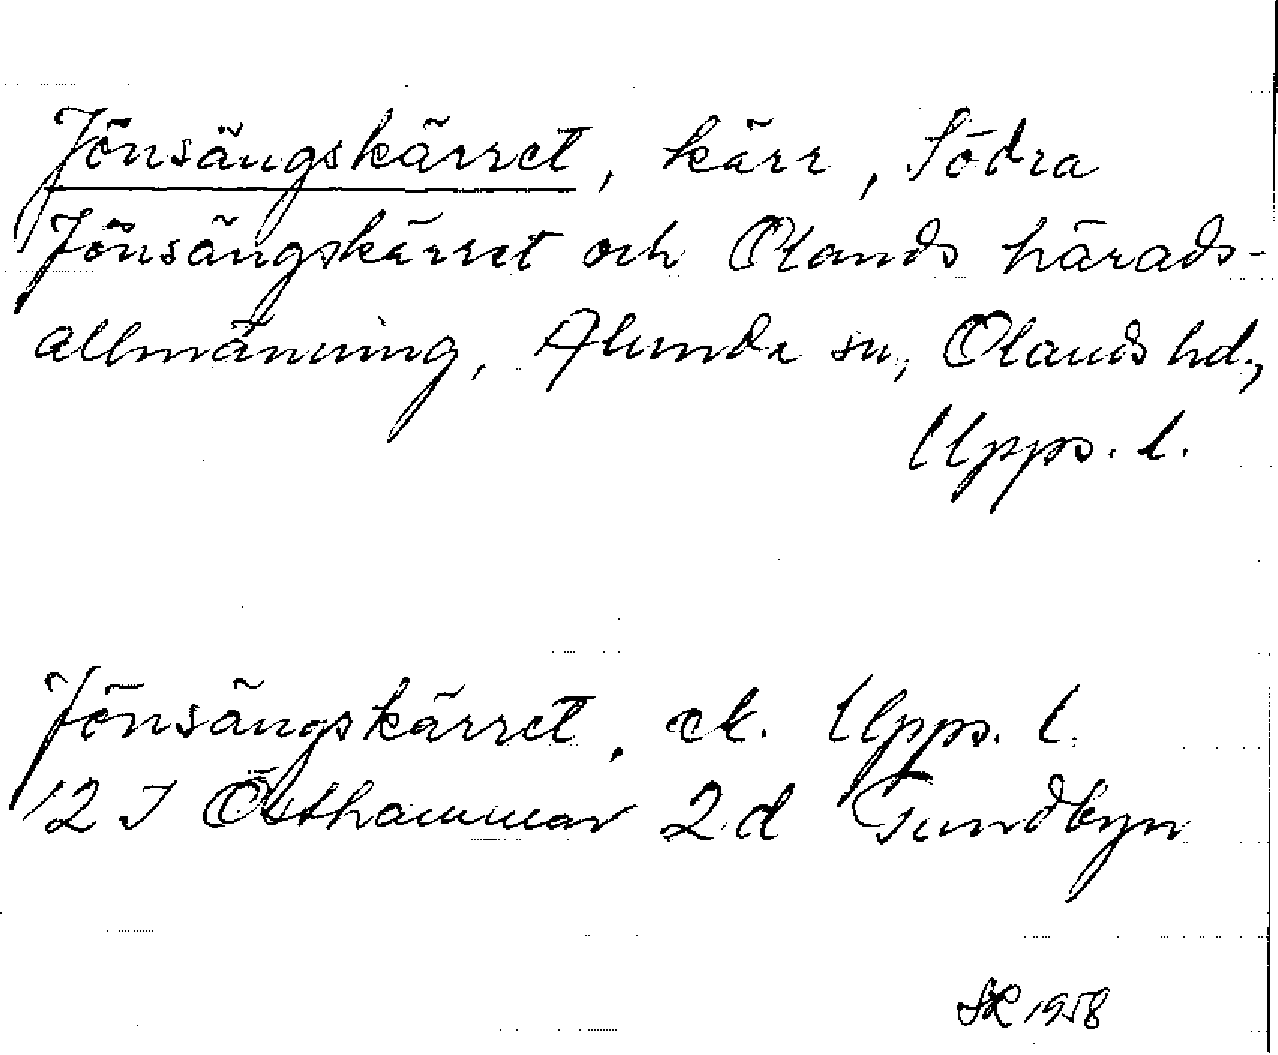 Jönsängskärret, kärr, Södra
Jönsängskärret och Olands härads-
allmänning, Alunda sn, Olands hd,
Upps. l.
Jönsängskärret, ek. Upps. l.
12 I Östhammar 2 d Tundbyn
SR 1958